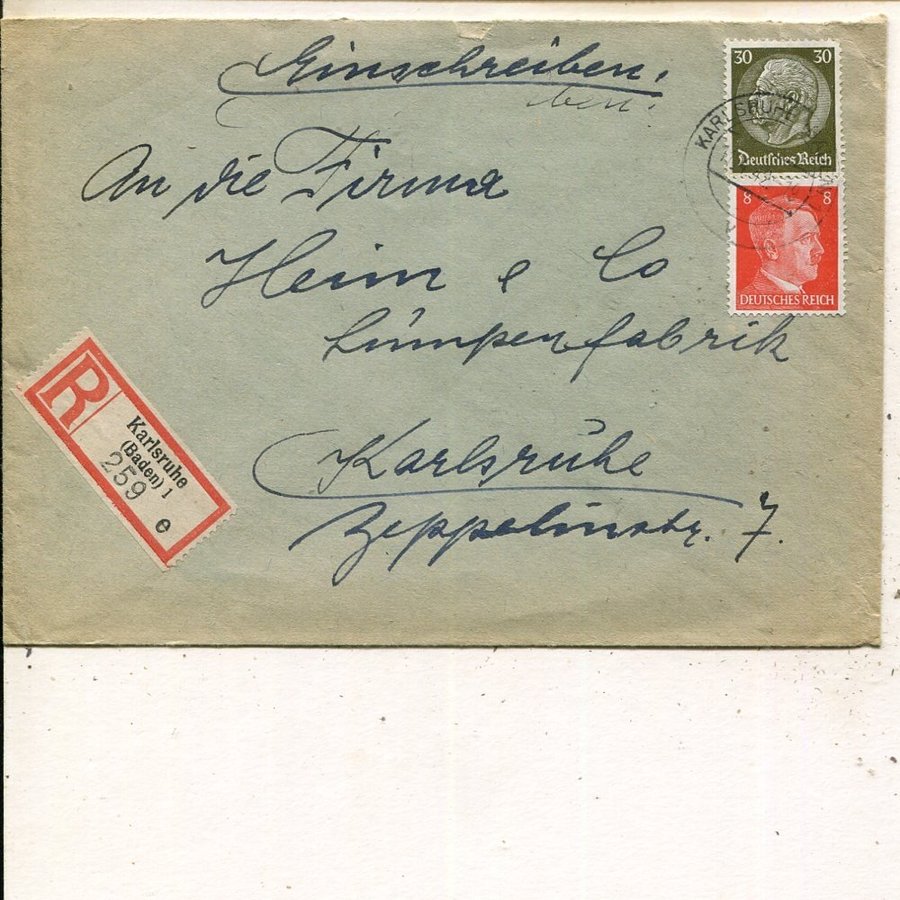 Einschreiben.
ben.
30 30
Deutsches Reich
KARLSRUHE
8 8
DEUTSCHES REICH
An die Firma
Heim & Co
Lumpenfabrik
Karlsruhe
Zeppelinstr. 7.
R
Karlsruhe
(Baden) 1
259
e